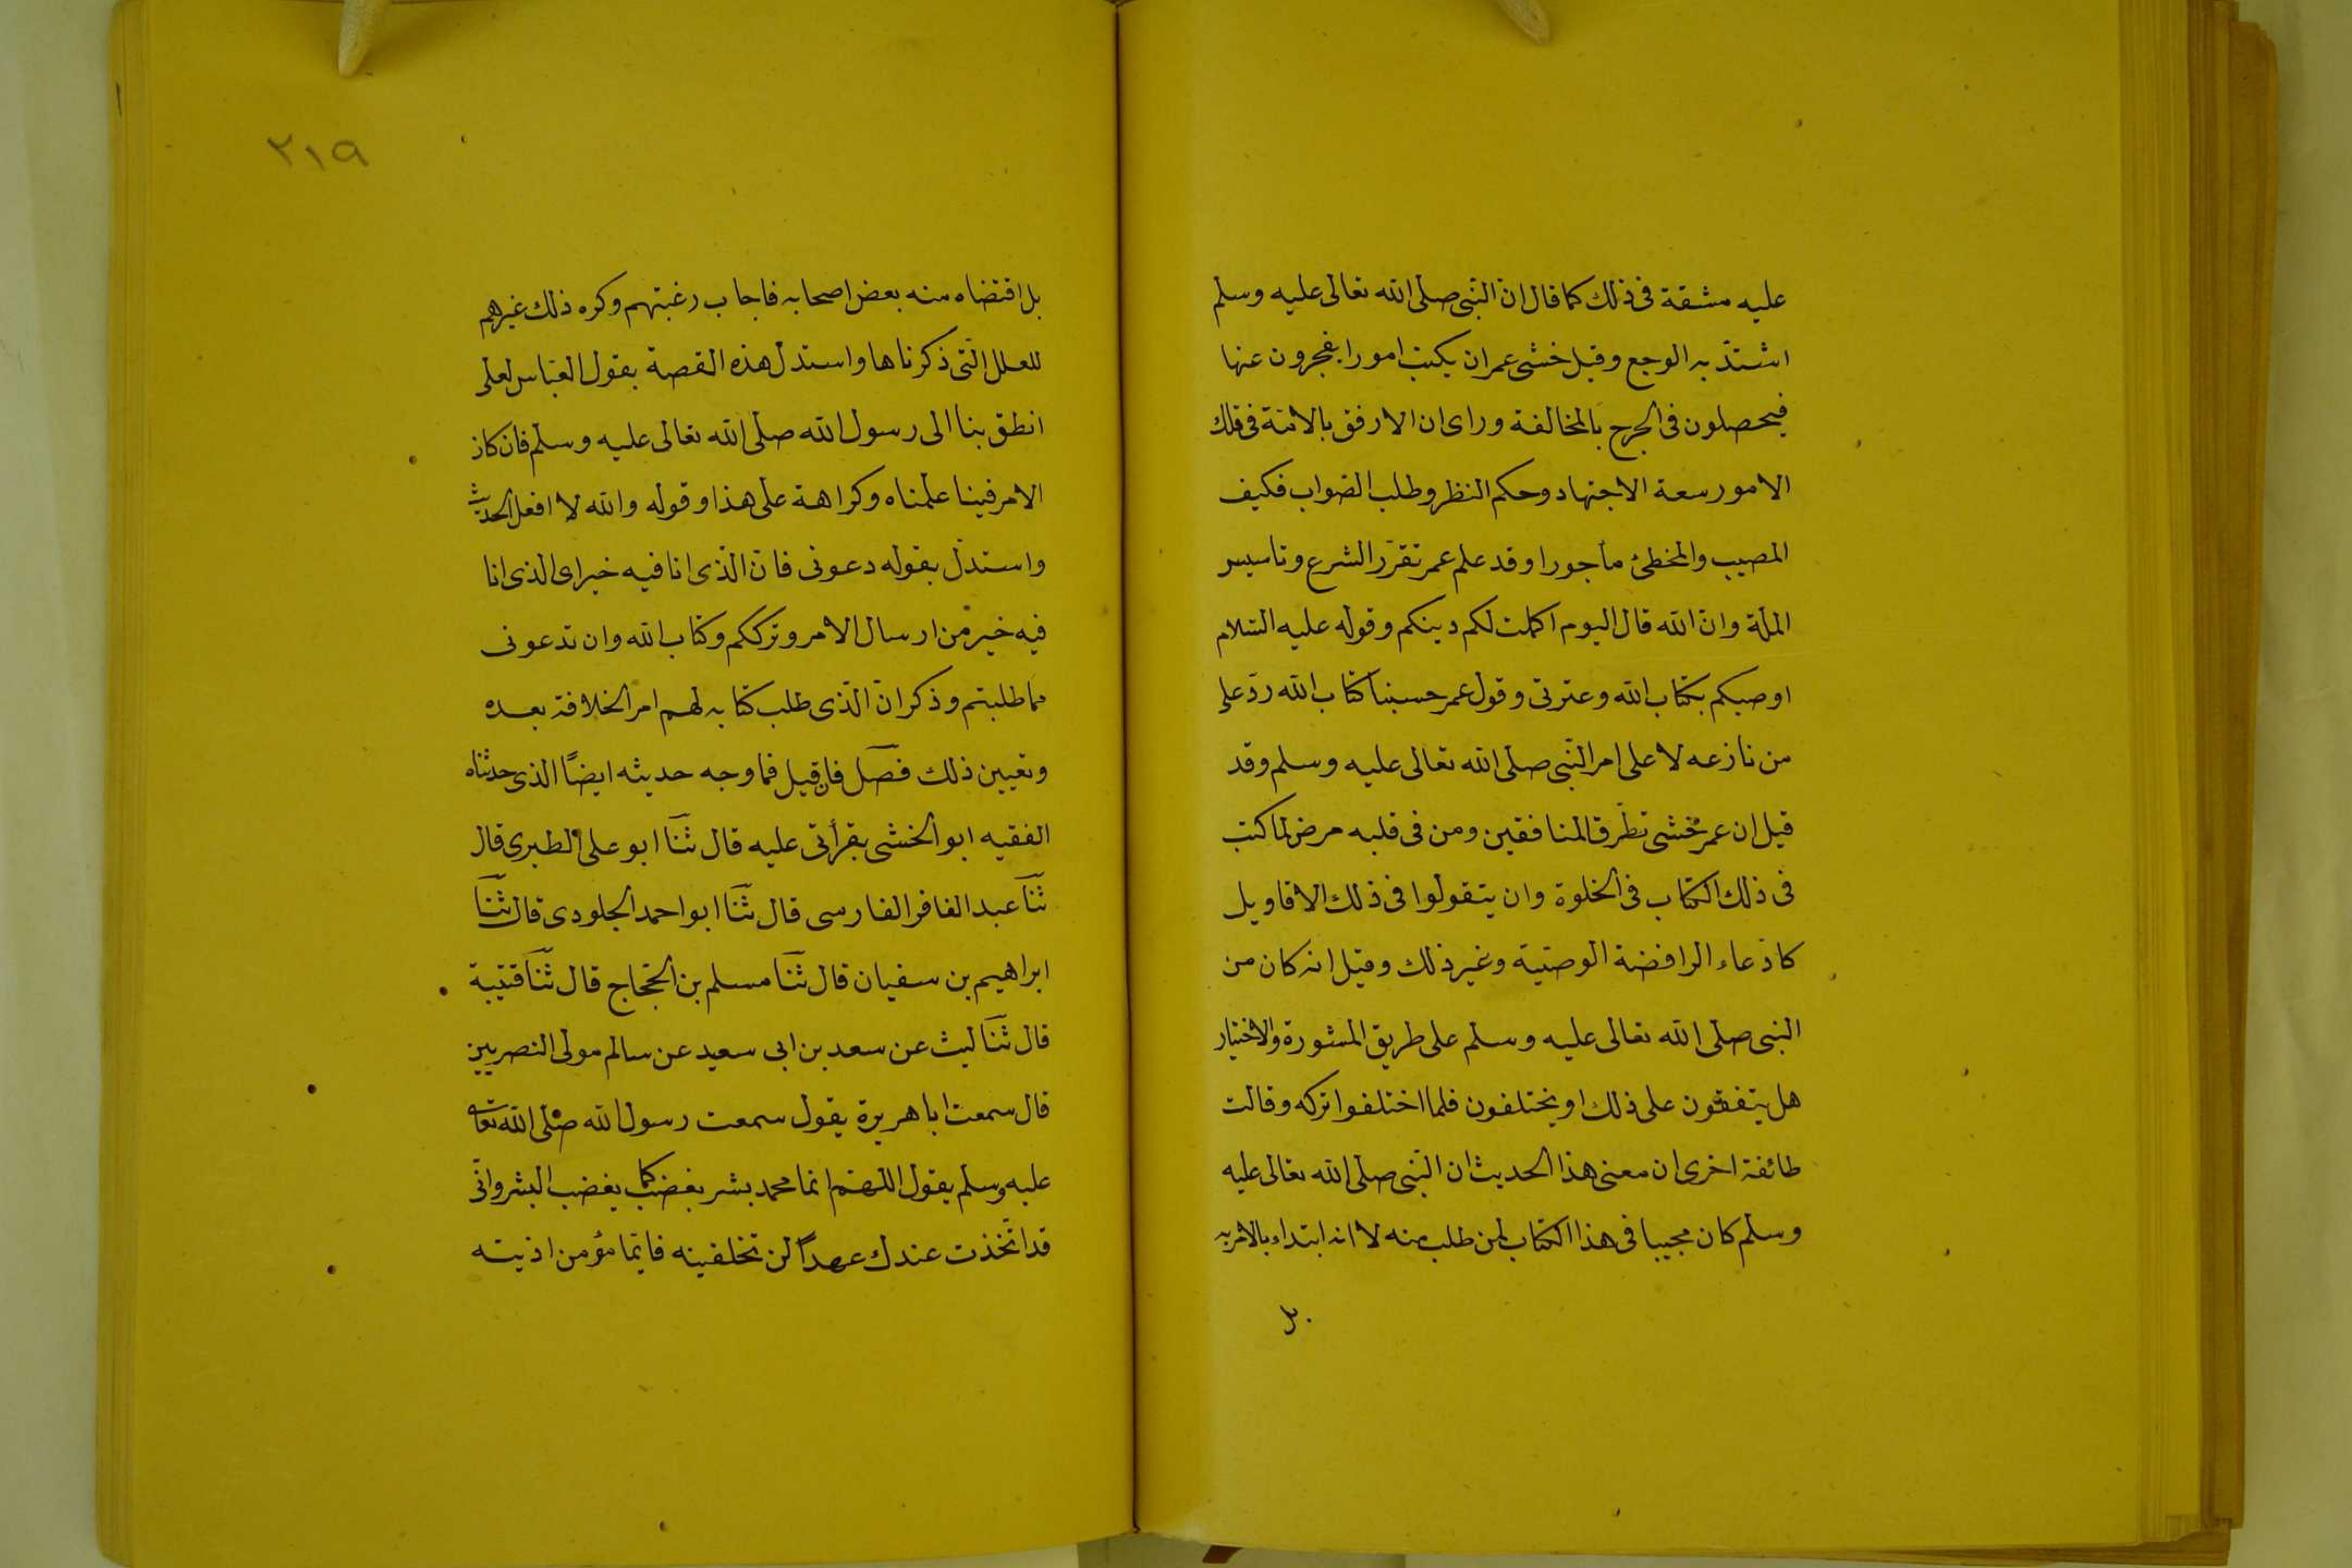 عليه مشقة فى ذلك كما قال انّ النّبى صلى الله تعالى عليه وسلم
اشتدّ به الوجع وقيل خشى عمر ان يكتب امورا يفجرون عنها
فيحصلون فى الحرج بالمخالفة وراى ان الارفق بالامّة فى تلك
الامور سعة الاجتهاد وحكم النظر وطلب الصّواب فكيف
المصيب والمخطئ مأجورا وقد علم عمر تقرّر الشرع وتاسيس
الملّة وانّ الله قال اليوم اكملت لكم دينكم وقوله عليه السّلام
اوصيكم بكتاب الله وعترتى وقول عمر حسبنا كتاب الله ردّ على
من نازعه لا على امر النّبى صلى الله تعالى عليه وسلم وقد
قيل ان عمر خشى تطرّق المنافقين ومن فى قلبه مرض لما كتب
فى ذلك الكتاب فى الخلوة وان يتقولوا فى ذلك الاقاويل
كادّعاء الرافضة الوصيّة وغير ذلك وقيل انه كان من
النبى صلى الله تعالى عليه وسلم على طريق المشورة والاختيار
هل يتفقون على ذلك او يختلفون فلما اختلفوا تركه وقالت
طائفة اخرى ان معنى هذا الحديث ان النّبى صلى الله تعالى عليه
وسلم كان مجيبا فى هذا الكتاب لمن طلب منه لا انه ابتداء بالامر به
بل
٢١٩
بل اقتضاه منه بعض اصحابه فاجاب رغبتهم وكره ذلك غيرهم
للعلل الّتى ذكرناها واستدل هذه القصة بقول العبّاس لعلى
انطق بنا الى رسول الله صلى الله تعالى عليه وسلم فان كان
الامر فينا علمناه وكراهة على هذا وقوله والله لا افعل الحديث
واستدلّ بقوله دعونى فانّ الّذى انا فيه خير اى الذى انا
فيه خير من ارسال الامر وترككم وكتاب الله وان تدعونى
مما طلبتم وذكر انّ الّذى طلب كتابه لهم امر الخلافة بعده
وتعيين ذلك فصل فان قيل فما وجه حديثه ايضًا الذى حدثناه
الفقيه ابو الخشى بقرأتى عليه قال ثنا ابو على الطبرى قال
ثنا عبد الغافر الفارسى قال ثنا ابو احمد الجلودى قال ثنا
ابراهيم بن سفيان قال ثنا مسلم بن الحجّاج قال ثنا قتيبة
قال ثنا ليث عن سعد بن ابى سعيد عن سالم مولى النصريين
قال سمعت ابا هريرة يقول سمعت رسول الله صلى الله تعالى
عليه وسلم يقول اللهمّ انما محمد بشر يغضب كما يغضب البشر وانّى
قد اتّخذت عندك عهداً لن تخلفينه فايّما مؤمن اذيته